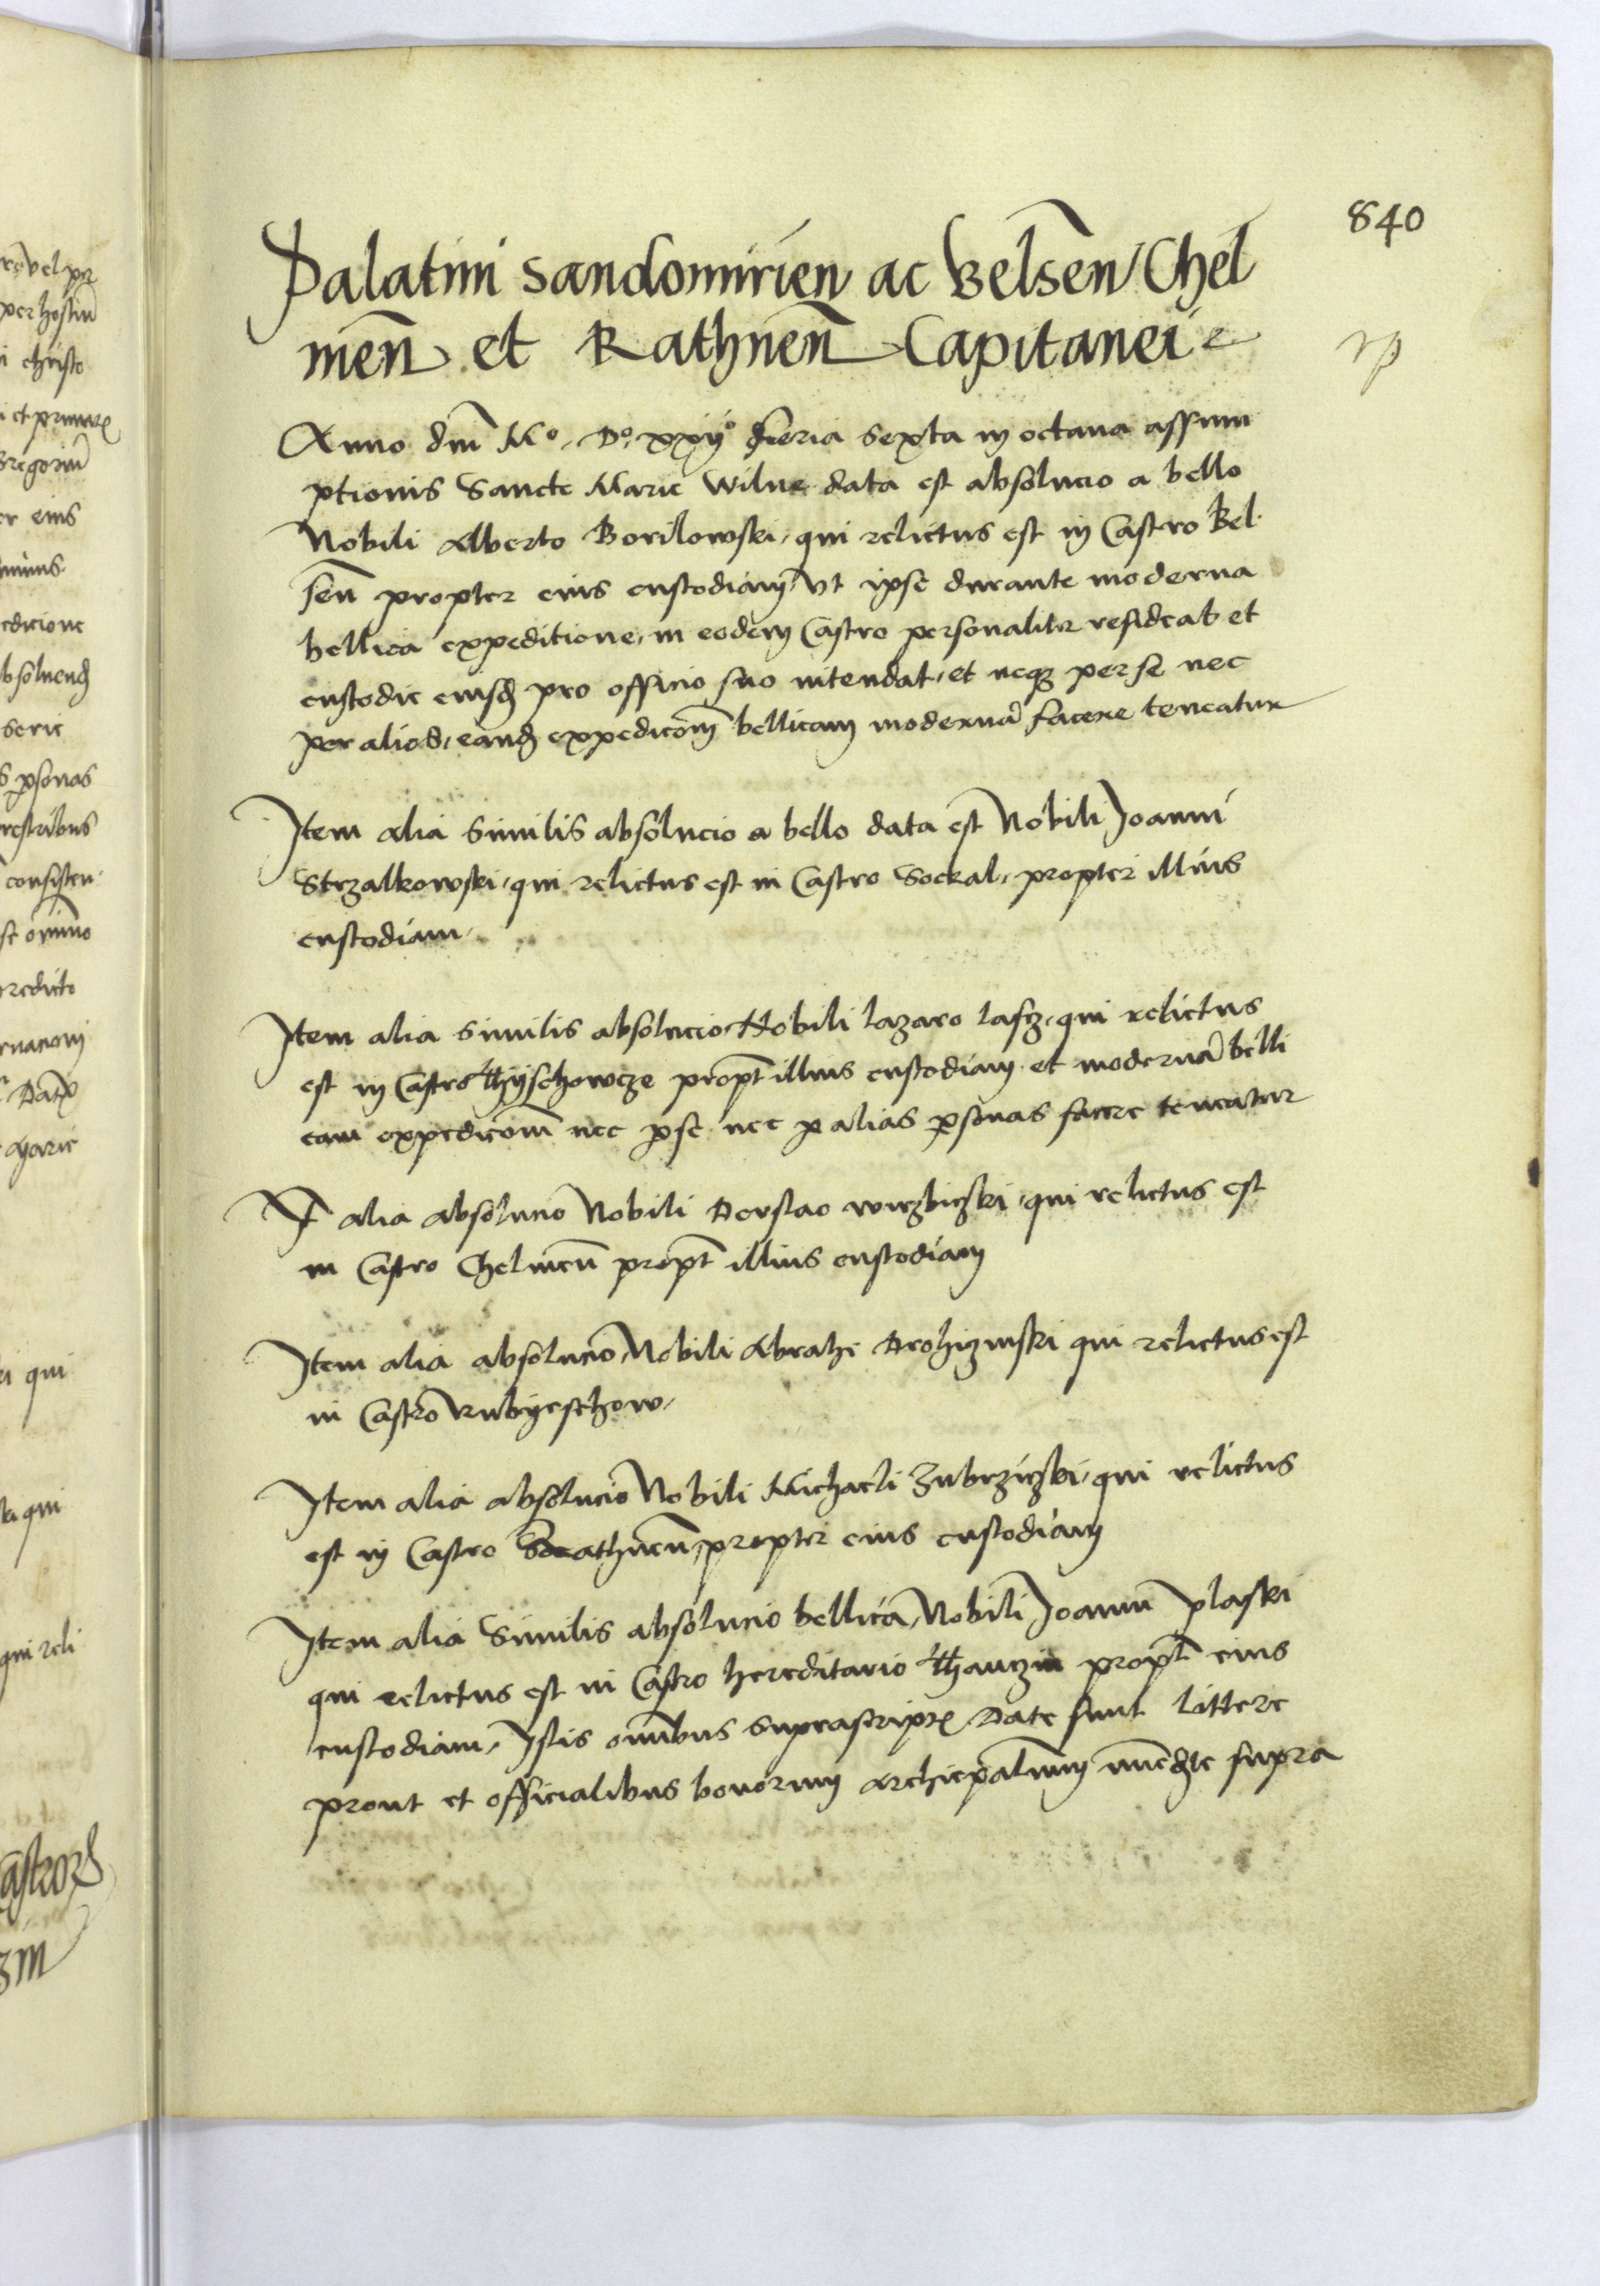 840
Palatini Sandomirien ac Belsen Chel
men et Rathnen Capitanei
Anno dni Mo. Do. xxijo feria sexta in octava assum
ptionis Sancte Marie Wilne data est absolucio a bello
Nobili Alberto Borilowski, qui relictus est in Castro Bel
sen propter eius custodiam, vt ipse durante moderna
bellica expeditione, in eodem Castro personaliter resideat et
custodie eiusd pro officio suo intendat, et neq per se nec
per alios, eand expedicom bellicam moderna facere teneatur
Item alia similis absolucio a bello data est Nobili Joanni
Strzalkowski, qui relictus est in Castro Sockal, propter illius
custodiam
Item alia similis absolucio Nobili Lazaro Lascz, qui relictus
est in Castro Thyschowcze propt illius custodiam et moderna belli
cam expedicom nec p se nec p alias psonas facere teneatur
It alia absolucio Nobili Derslao wirzbiczki, qui relictus est
in Castro Chelmen propt illius custodiam
Item alia absolucio Nobili Abrahe Drohiczinski qui relictus est
in Castro Rubyeschow
Item alia absolucio Nobili Michaeli Zubrziczki, qui relictus
est in Castro Rathnen propter eius custodiam
Item alia similis absolucio bellica, Nobili Joanni Plaski
qui relictus est in Castro hereditario Thanczin propt eius
custodiam, Istis omibus suprascript Date sunt littere
prout et officialibus bonorum Archiepalium supra